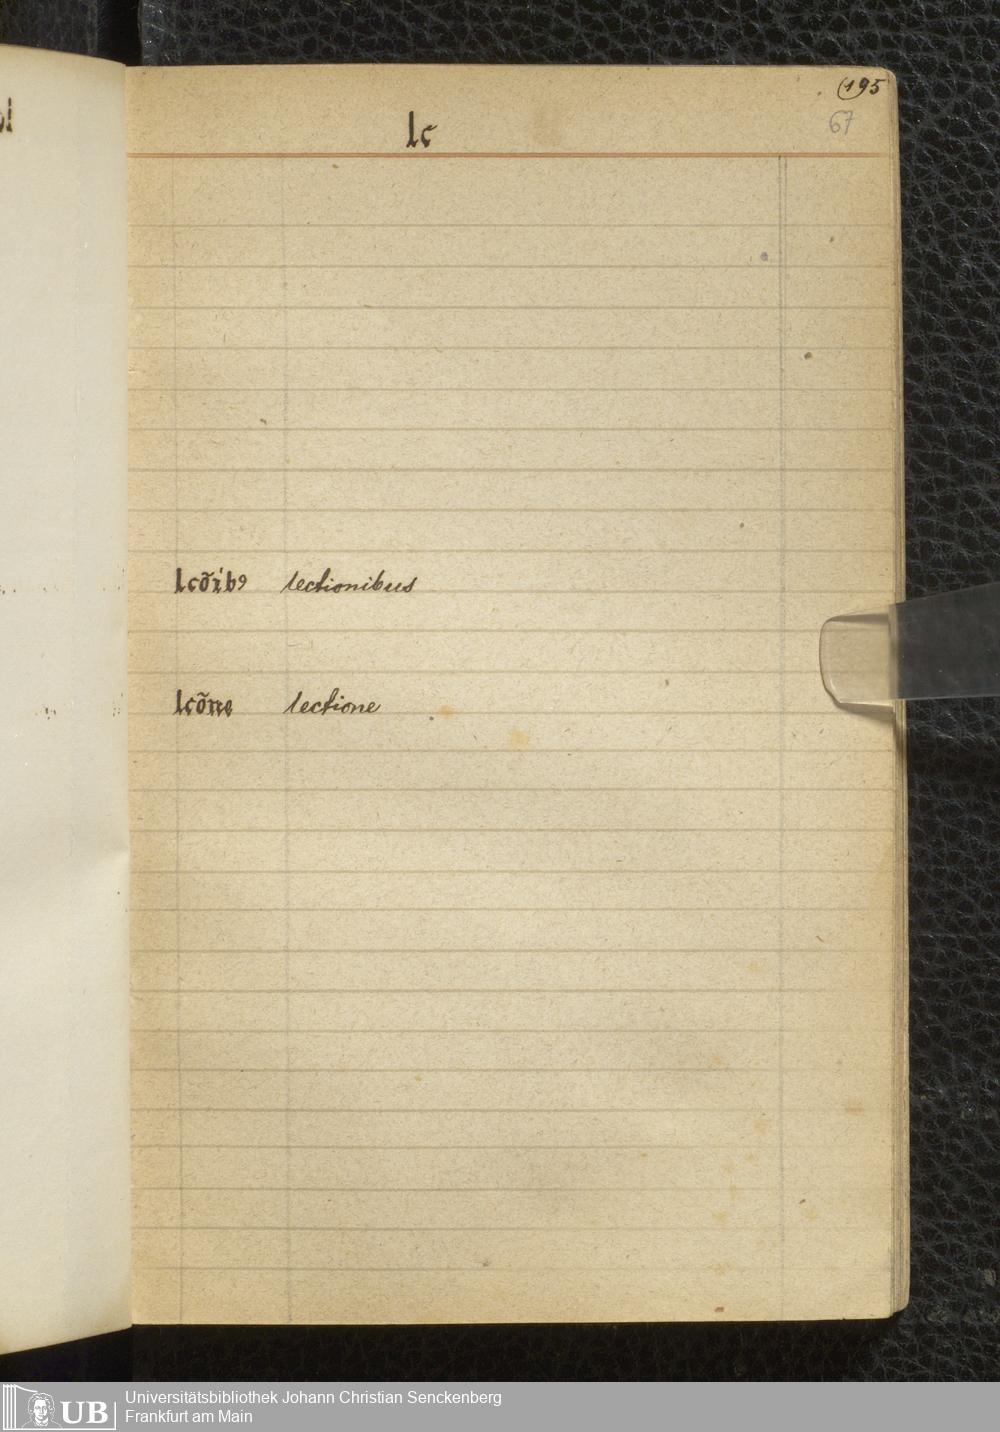 (195
67
lc
lcõıbꝰ lectionibus
lcõne lectione
UB Universitätsbibliothek Johann Christian Senckenberg
Frankfurt am Main